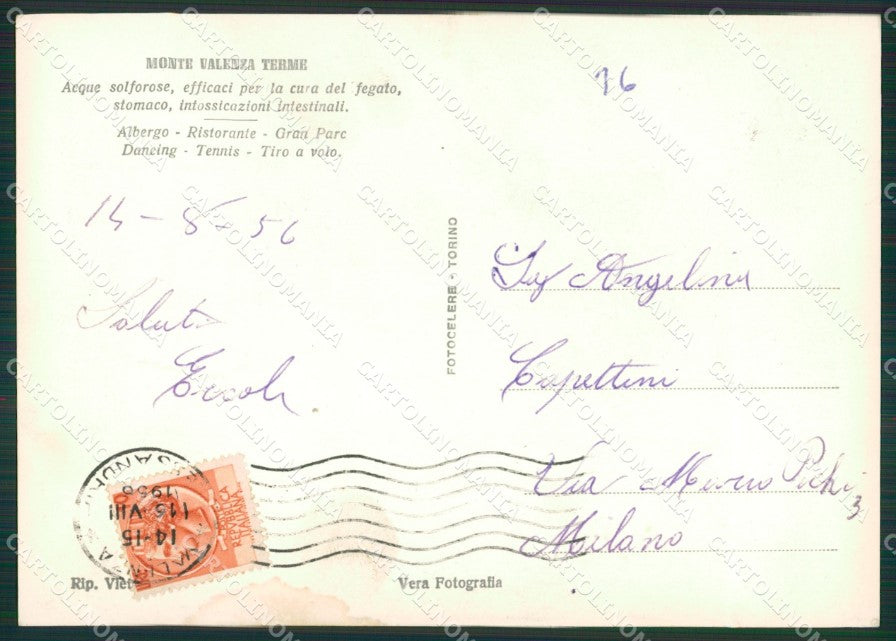 MONTE VALENZA TERME
Acque solforose, efficaci per la cura del fegato,
stomaco, intossicazioni intestinali.
Albergo - Ristorante - Gran Parc
Dancing - Tennis - Tiro a volo.
16
14-8-56
Saluti
Ercole
FOTOCELERE - TORINO
Sig Angelina
Cupettini
Via Marco
3
Milano
14-15
15 VIII
1956
REPVBBLICA
ITALIANA
Rip. Viet
Vera Fotografia
CARTOLINOMANIA